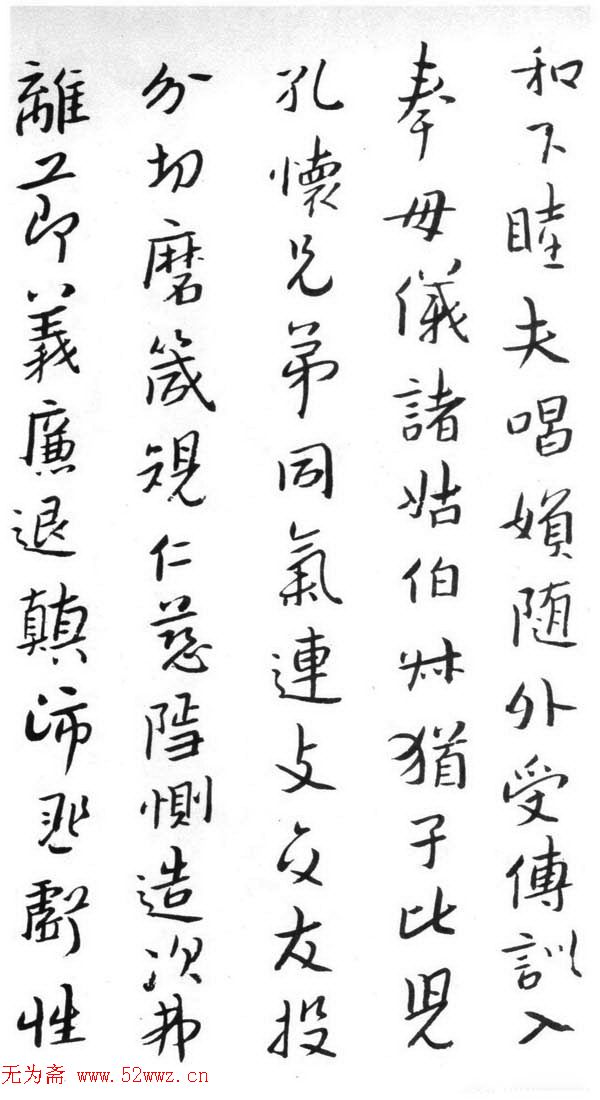 和下睦夫唱婦随外受傅訓入
奉母儀諸姑伯叔猶子比児
孔懷兄弟同氣連支交友投
分切磨箴規仁慈隱惻造次弗
離莭義廉退顛沛匪虧性
无为斋 www.52wwz.cn